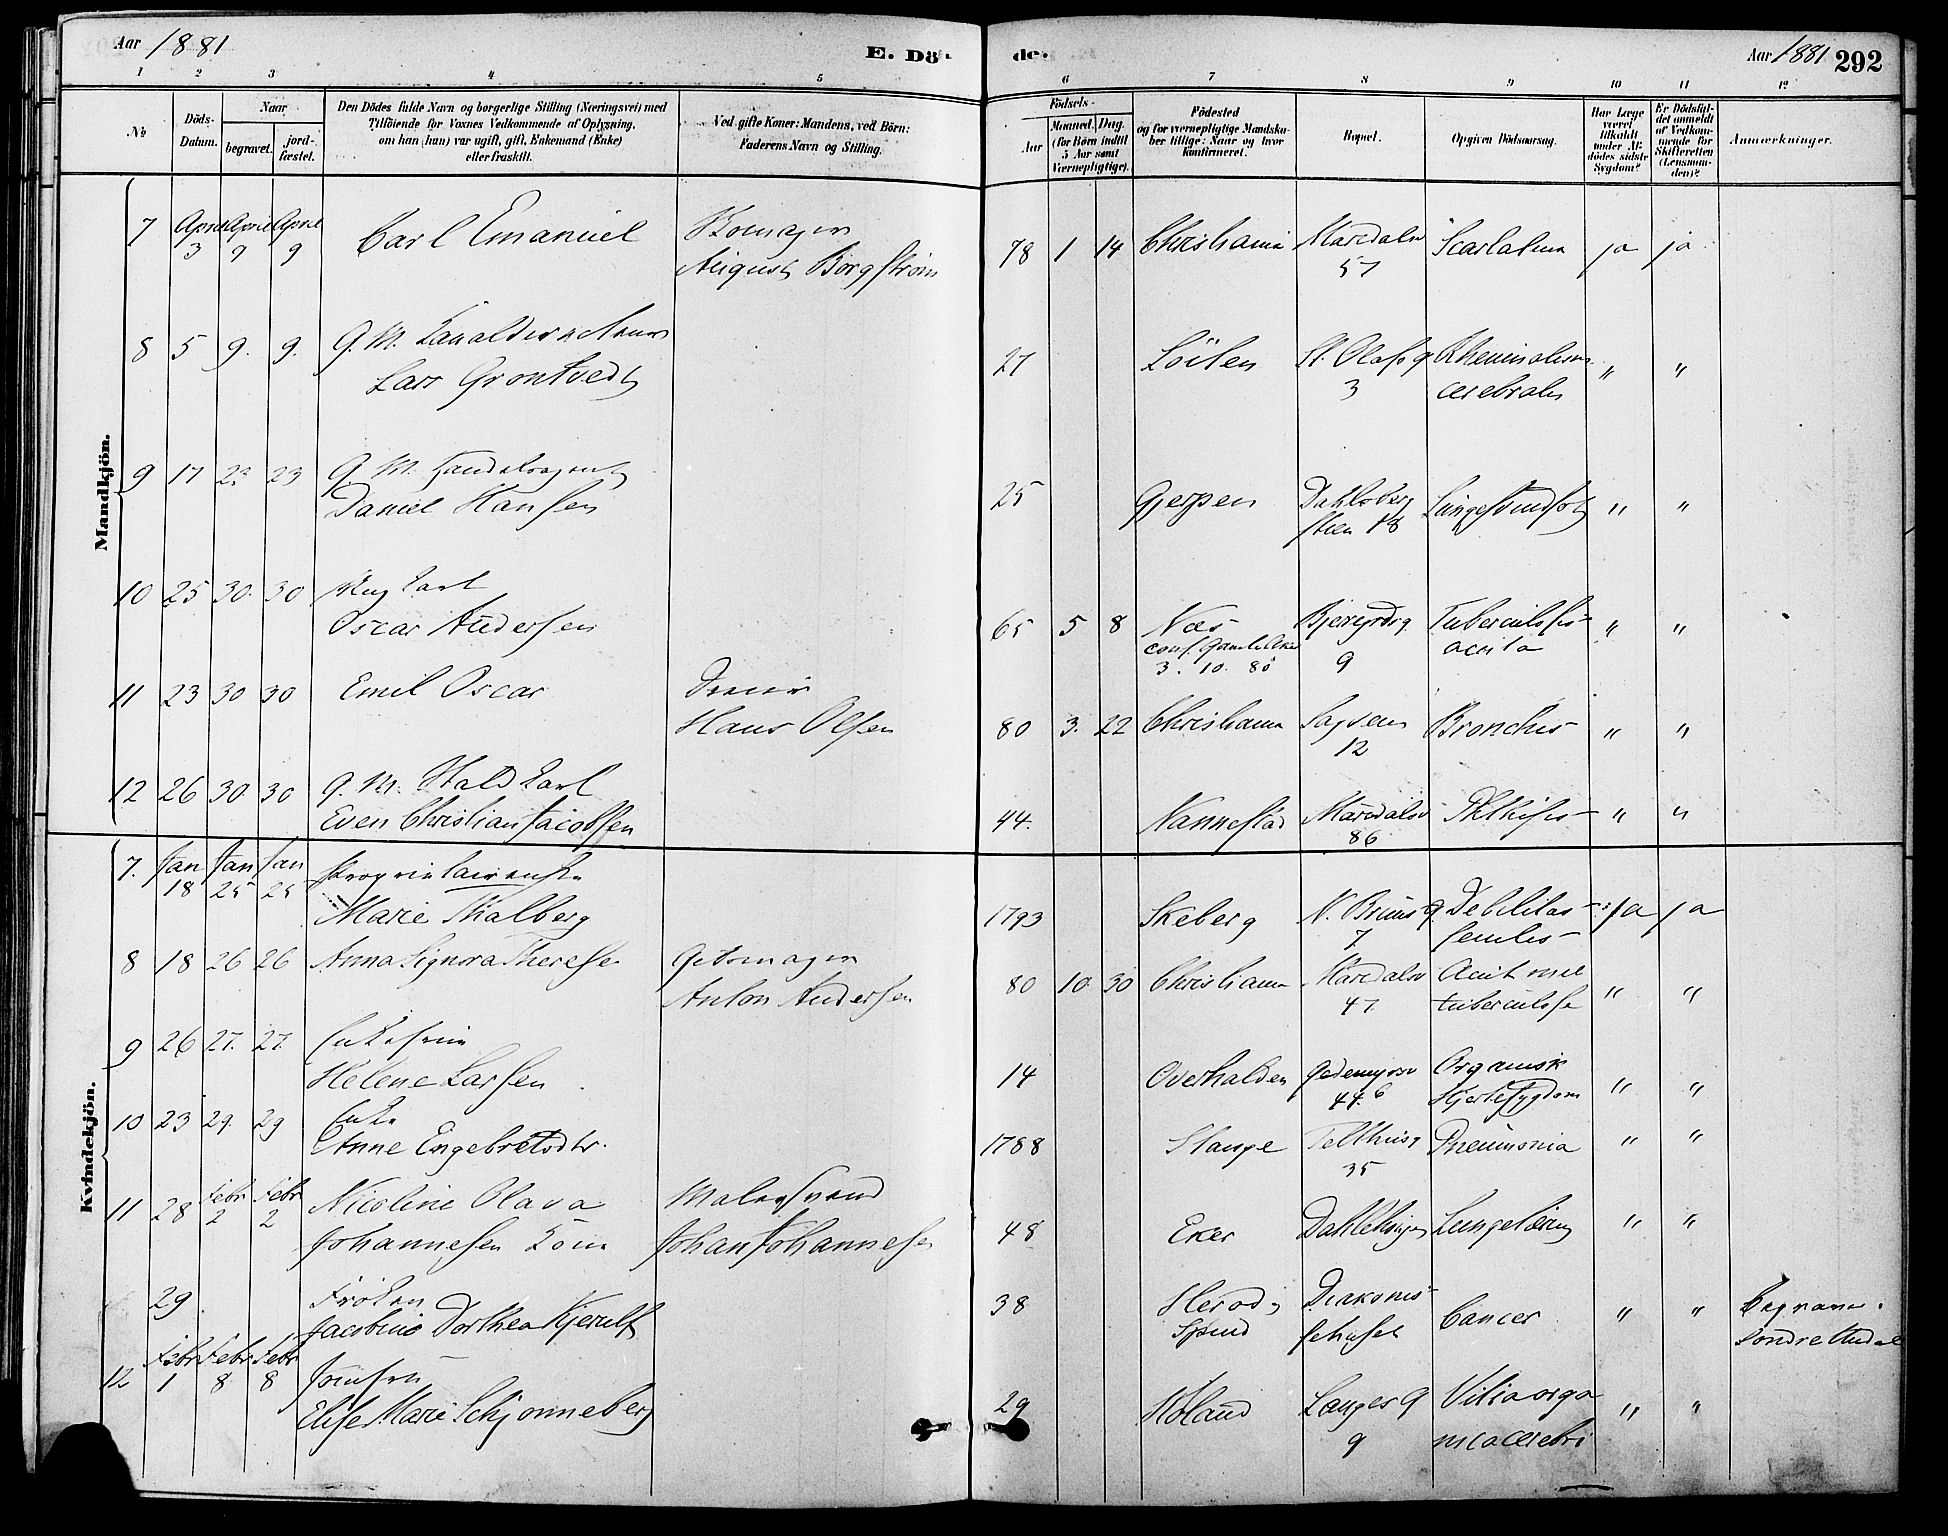 Aar 1881
E. Döde.
Aar 1881 292
1 2 3 4 5 6 7 8 9 10 11 12
No
Döds-Datum.
Naar
begravet.
jordfæstet.
Den Dödes fulde Navn og borgerlige Stilling (Næringsvei) med
Tilföiende for Voxnes Vedkommende af Oplysning,
om han (hun) var ugift, gift, Enkemand (Enke)
eller fraskilt.
Ved gifte Koner: Mandens, ved Börn:
Faderens Navn og Stilling.
Födsels-
Aar
Maaned. Dag.
(for Børn indtil
5 Aar samt
Værnepligtige).
Födested
og for værnepligtige Mandska-
ber tillige: Naar og hvor
konfirmeret.
Bopæl.
Opgiven Dödsaarsag.
Har Læge
været
tilkaldt
under Af-
dödes sidste
Sygdom?
Er Dödsfal-
det anmeldt
af Vedkom-
mende for
Skifteretten
(Lensman-
den)?
Anmærkninger.
Mandkjön.
7 April 3 April 9 April 9 Carl Emanuel
August Borgström
78 1 14 Christiania Maridalsv 57 Scarlatina ja ja
8 5 9. 9. g. M.
Lars Grontvedt
27 Löiten St. Olafs g 3 cerebralis " "
9 17 23 23 g. M. Handelsagent
Daniel Hansen
25 Gjerpen Dahlsberg stien 18 " "
10 25 30. 30 Ungkarl
Oscar Andersen
65 5 8 Næs
3. 10. 80
9 Tuberculosis acuta " "
11 23 30 30 Emil Oscar
Hans Olsen
80 3. 22 Christiania Sagvein 12 Bronchit " "
12 26 30 30 g. M. Staldkarl
Even Christian Jacobsen
44. Nannestad Maridalsv 86 Phthisis " "
Kvindekjön.
7. Jan 18 Jan 25 Jan 25 Proprietairenke
Marie Thalberg
1793 Skeberg N. Bruns g 7 Debilitas senilis ja ja
8 18 26 26 Anna Signora Therese
Anton Andersen
80 10 30 Christiania Maridalsv 47 Acut mil tuberculose " "
9 26 27. 27.
Helene Larsen
14 Overhalden 44.6 Organisk Hjertesygdom " "
10 23 29. 29 Enke
Anne Engebretsdtr.
1788 Stange Telthusg 35 Pneumonia " "
11 28 Febr 2 Febr 2 Nicoline Olava
Johannesen
Malersvend
Johan Johannesen
48 Eker " "
29 Fröken
Jacobine Dorthea Kjerulf
38 Diakonissehuset Cancer " "
Begraves
Söndre Undal
12 Febr 1 Febr 8 Febr 8 Jomfru
Elise Marie Schjonneberg
29 Höland Langes g 9 Vitia organica cerebri " "